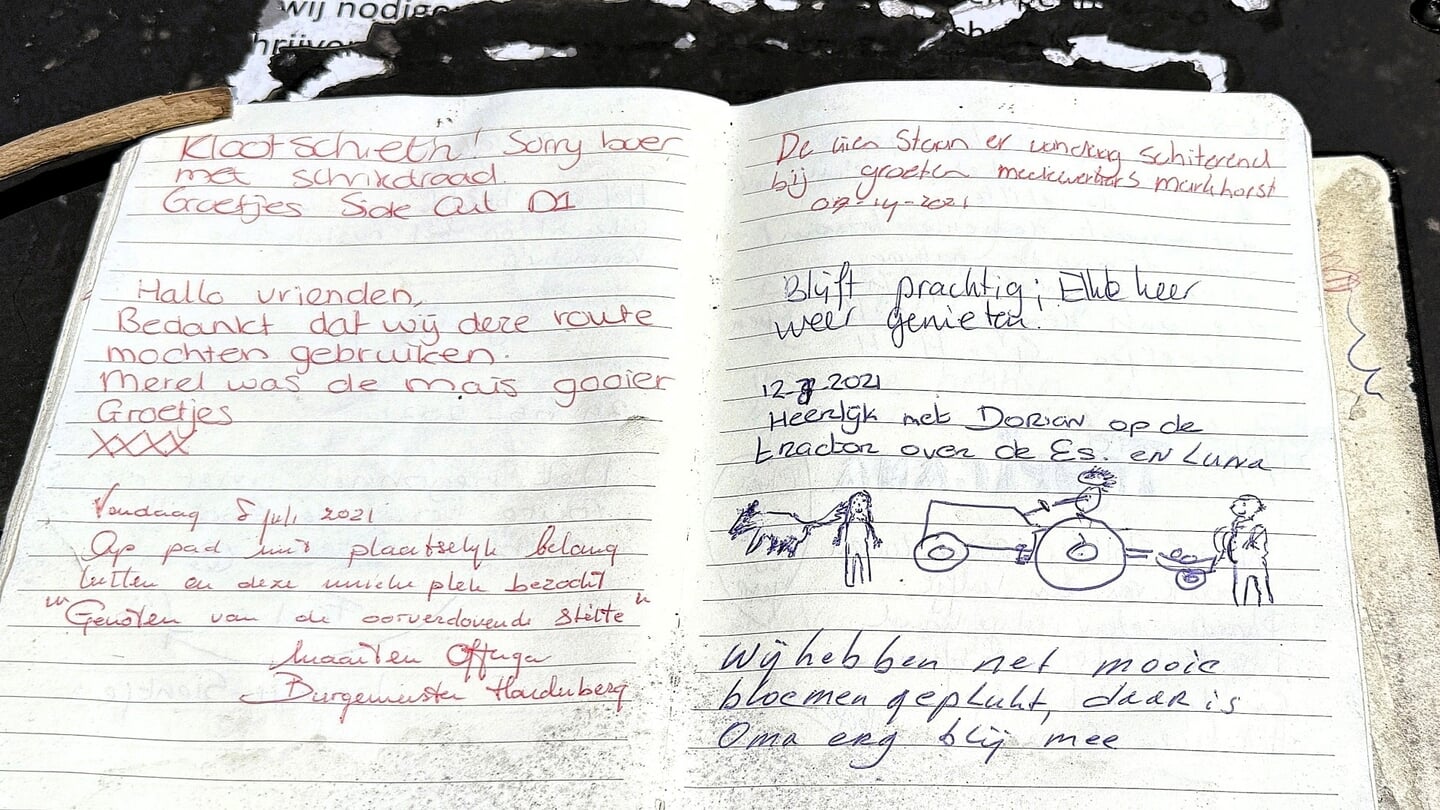 wij nodige
hrijve
Klootschieth! Sorry boer
met schrikdraad.
Groetjes Side Out D1
Hallo vrienden,
Bedankt dat wij deze route
mochten gebruiken.
Merel was de maïs gooier
Groetjes
XXXX
Vandaag 8 juli 2021
Op pad met plaatselijk belang
Lutten en deze unieke plek bezocht
"Genoten van de oorverdovende stilte"
Maarten Offinga
Burgemeester Hardenberg
De Staan er vandaag schiterend
bij groeten markhorst
2021
Blijft prachtig; Elke keer
weer genieten.
2021
Heerlijk met Dorian op de
tractor over de Es. en Luna
Wij hebben net mooie
bloemen geplukt, daar is
Oma erg blij mee